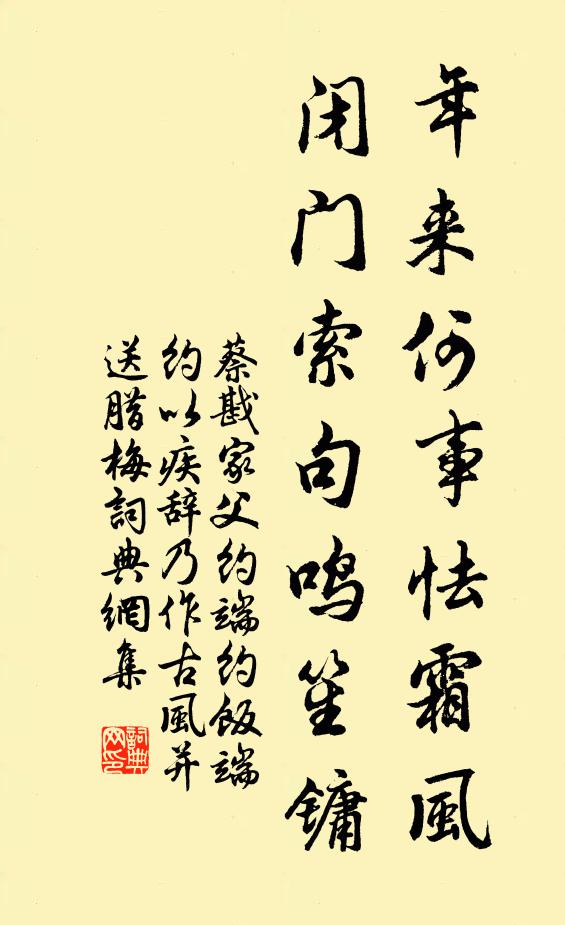 年来何事怯霜風
闭门索句鸣笙镛
蔡戡家父约端约饭端
约以疾辞乃作古風并
送腊梅詞典網集
詞典网印